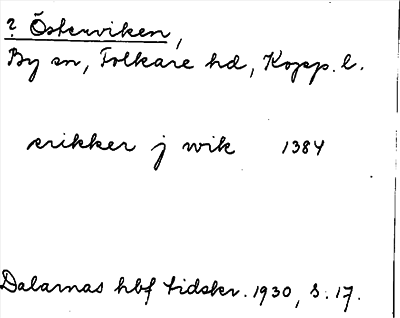 ? Österviken,
By sn, Folkare hd, Kopp. l.
erikker j wik 1384
Dalarnas hbf tidskr. 1930, s. 17.